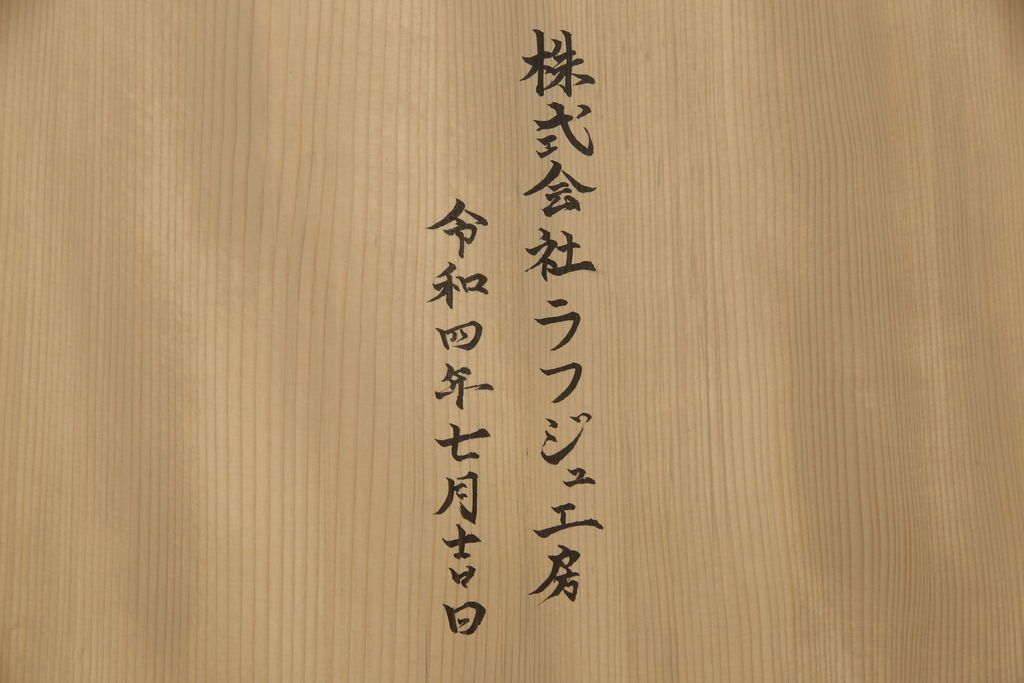 株式会社ラフジュ工房
令和四年七月吉日